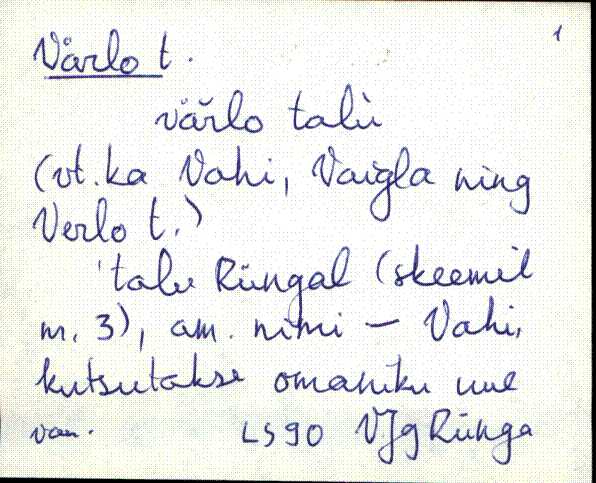 1
Värlo t.
värlo talu
(vt. ka Vahi, Vaigla ning
Verlo t.)
talu Rüngal (skeemil
nr. 3), am. nimi – Vahi,
kutsutakse omaniku
LS90 VJg Rünga